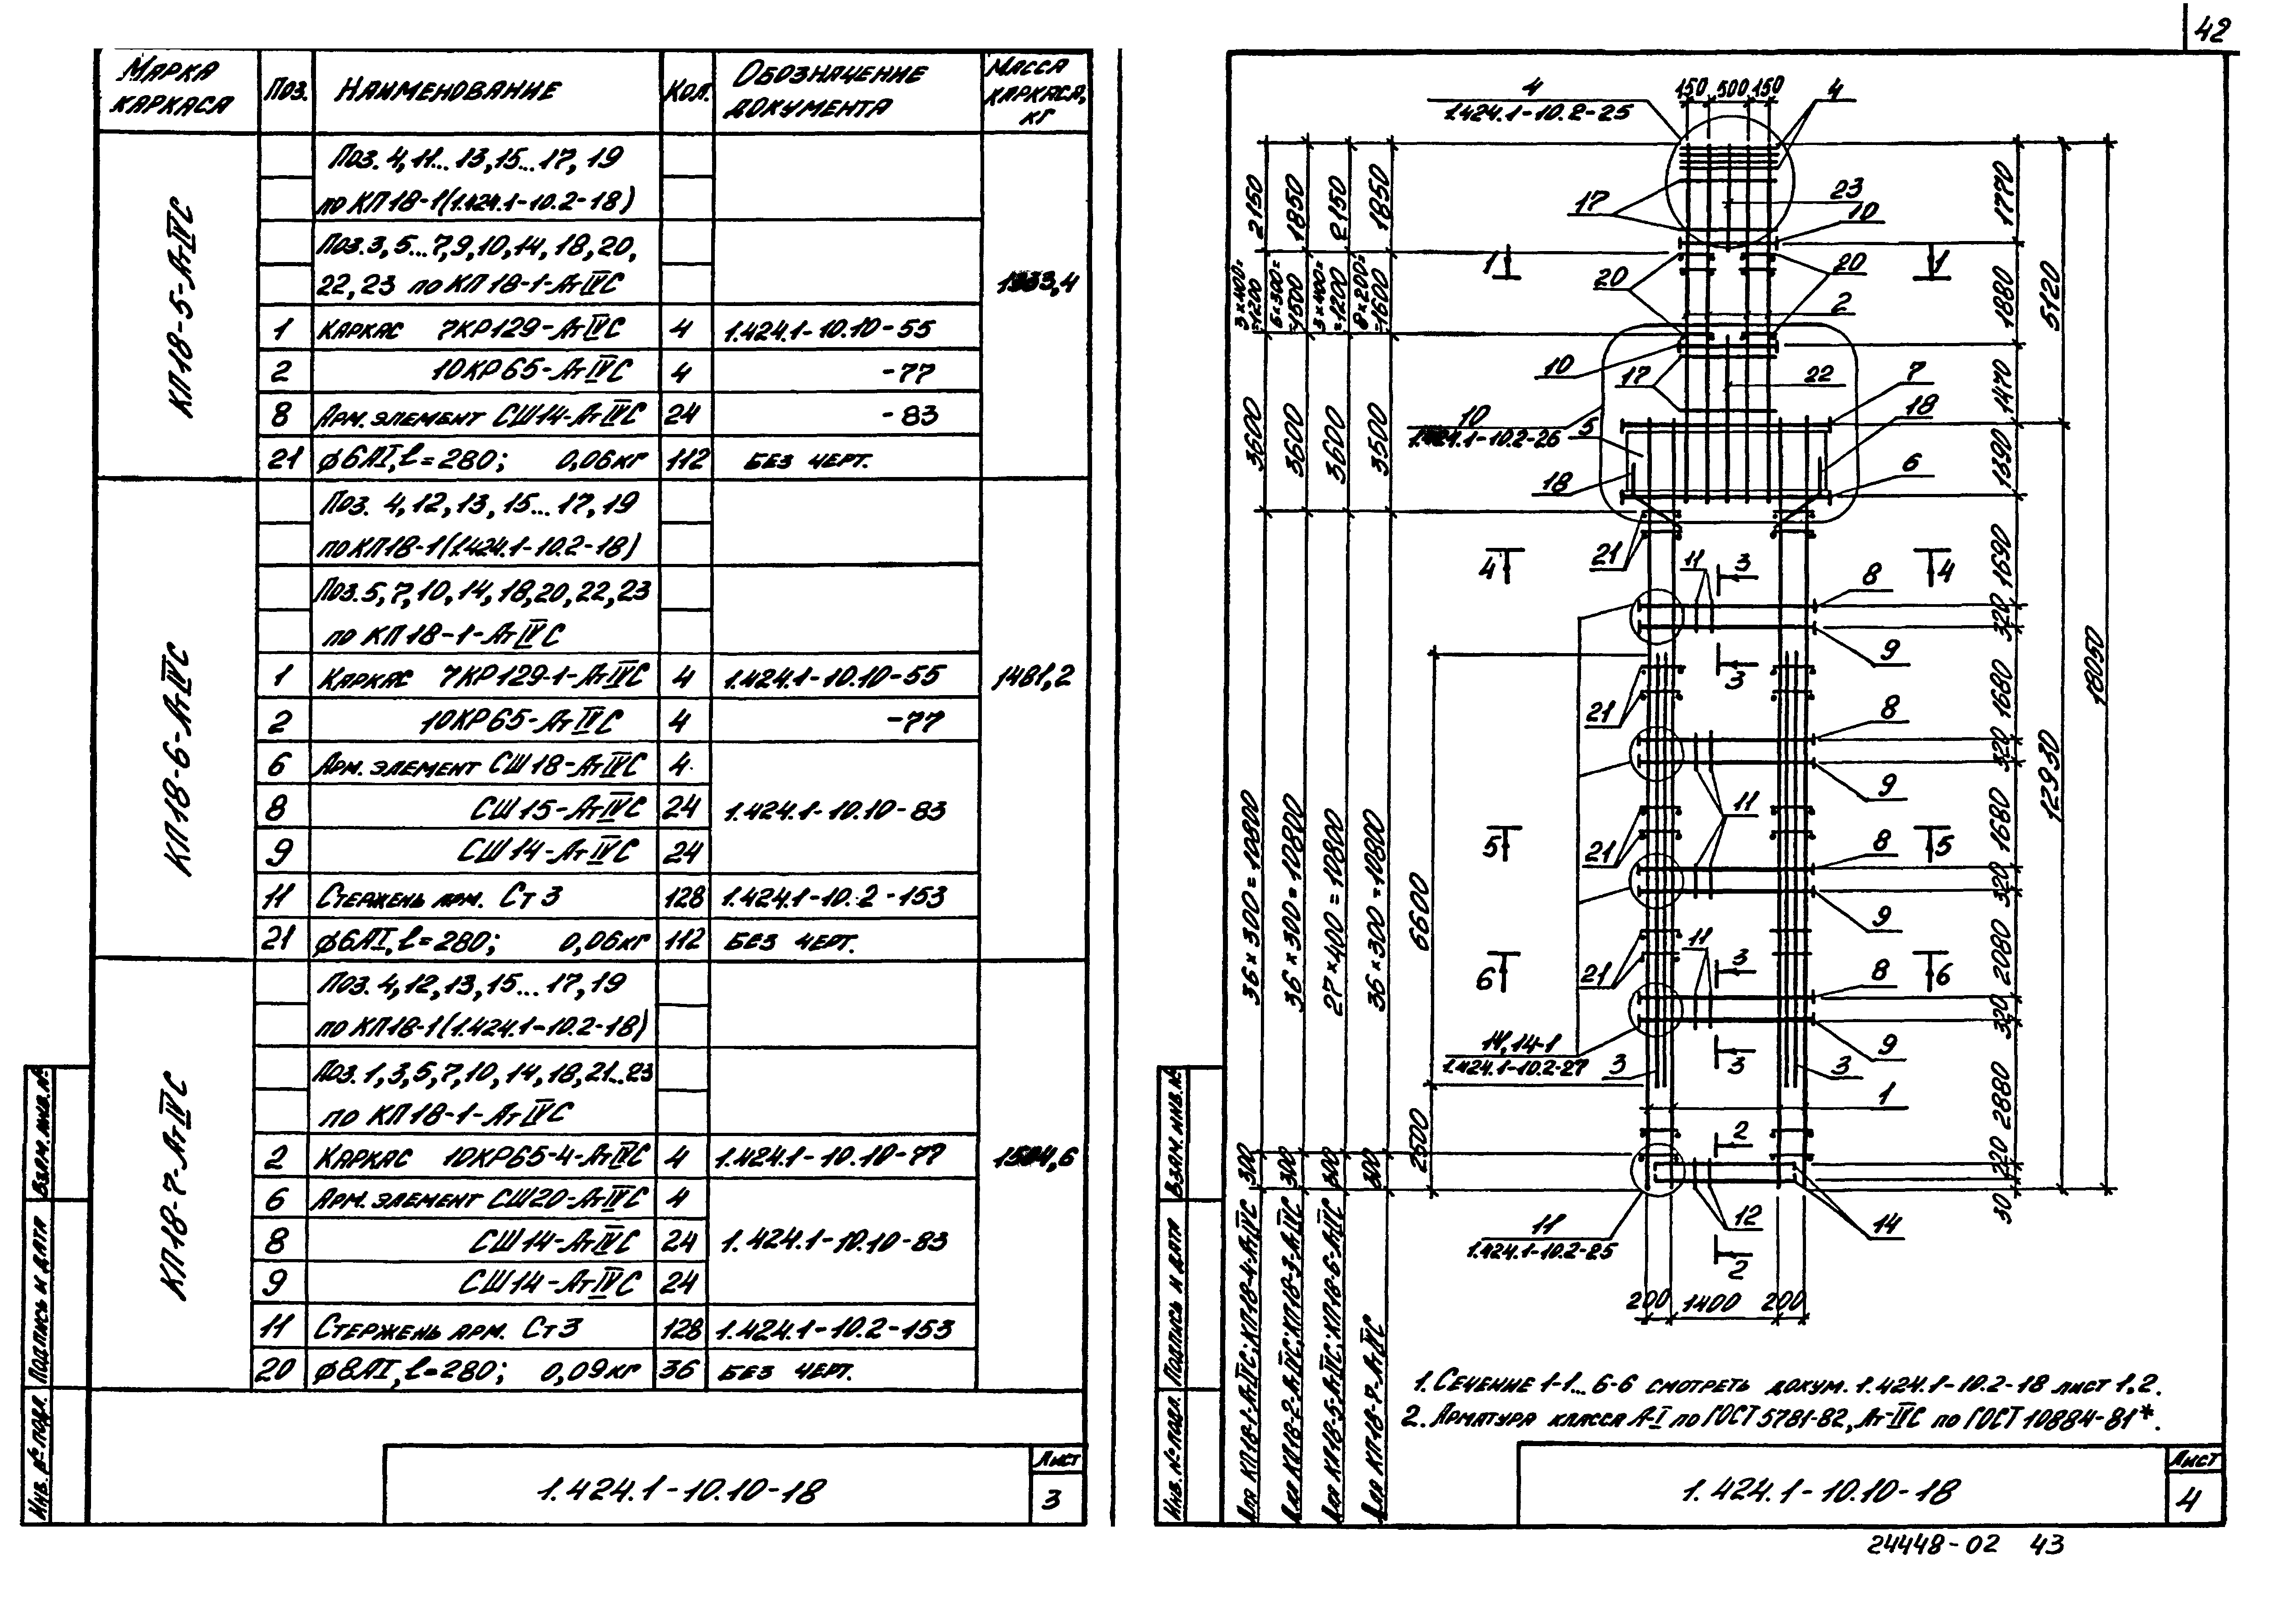 42
Марка каркаса
Поз.
Наименование
Кол.
Обозначение документа
Масса каркаса, кг
КП18-5-АтIVС
Поз. 4, 11...13, 15...17, 19
по КП18-1 (1.424.1-10.2-18)
Поз. 3, 5...7, 9, 10, 14, 18, 20,
22, 23 по КП18-1-АтIVС
1 Каркас 7КР129-АтIVС 4 1.424.1-10.10-55
2 10КР65-АтIVС 4 -77
8 Арм. элемент СШ14-АтIVС 24 -83
21 ф6АI, ℓ=280; 0,06кг 112 без черт.
КП18-6-АтIVС
1481,2
Поз. 4, 12, 13, 15...17, 19
по КП18-1 (1.424.1-10.2-18)
Поз. 5, 7, 10, 14, 18, 20, 22, 23
по КП18-1-АтIVС
1 Каркас 7КР129-1-АтIVС 4 1.424.1-10.10-55
2 10КР65-АтIVС 4 -77
6 Арм. элемент СШ18-АтIVС 4
8 СШ15-АтIVС 24 1.424.1-10.10-83
9 СШ14-АтIVС 24
11 Стержень арм. Ст3 128 1.424.1-10.2-153
21 ф6АI, ℓ=280; 0,06кг 112 без черт.
КП18-7-АтIVС
Поз. 4, 12, 13, 15...17, 19
по КП18-1 (1.424.1-10.2-18)
Поз. 1, 3, 5, 7, 10, 14, 18, 21...23
по КП18-1-АтIVС
2 Каркас 10КР65-4-АтIVС 4 1.424.1-10.10-77
6 Арм. элемент СШ20-АтIVС 4
8 СШ14-АтIVС 24 1.424.1-10.10-83
9 СШ14-АтIVС 24
11 Стержень арм. Ст3 128 1.424.1-10.2-153
20 ф8АI, ℓ=280; 0,09кг 36 без черт.
Инв. № подл.
Подпись и дата
Взам. инв. №
1.424.1-10.10-18
Лист
3
4
1.424.1-10.2-25
150 500 150
4
17
23
10
1
1
20
20
2
10
17
22
7
18
10
1.424.1-10.2-26
5
18
6
21
11
3
4
4
8
9
3
21
8
9
11
5
5
21
8
9
21
11
3
6
6
8
9
14, 14-1
1.424.1-10.2-27
3
3
3
1
2
11
1.424.1-10.2-25
12
14
2
200 1400 200
2150
3×400=
=1200
3600
36×300=10800
300
Для КП18-1-АтIVС; КП18-4-АтIVС
1850
5×300=
=1500
3600
36×300=10800
300
Для КП18-2-АтIVС; КП18-3-АтIVС
2150
3×400=
=1200
3600
27×400=10800
300
Для КП18-5-АтIVС; КП18-6-АтIVС
1850
8×200=
=1600
3500
36×300=10800
300
Для КП18-7-АтIVС
6600
2500
1770
1880
1470
1390
1690
320
1680
320
1680
320
2080
320
2880
30
5120
12930
18050
1. Сечение 1-1...6-6 смотреть докум. 1.424.1-10.2-18 лист 1,2.
2. Арматура класса А-I по ГОСТ 5781-82, Ат-IVС по ГОСТ 10884-81*.
Инв. № подл.
Подпись и дата
Взам. инв. №
1.424.1-10.10-18
Лист
4
24448-02 43